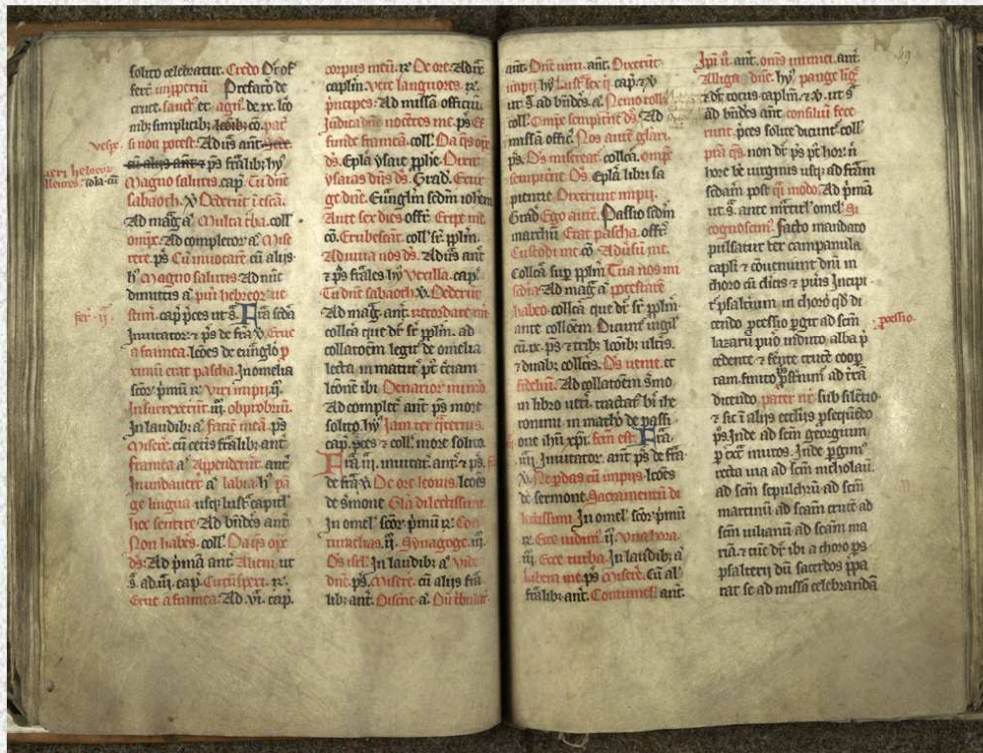 solito celebratur. Credo Dr of
fert' impperiū Prefacō de
cruce. sanct' et agn' de rx. lcō
nib; simplicib; lcōib; cō. pat'
vespe.
si non potest. Ad us ant
cū alijs ant & ps frālib; hȳ
Magno salutis. cap. Tu dn̄e
sabaoth. V Dederūt ī escā.
Ad mag a. Multa t'ba. coll
omps. Ad completor a. Mise
rere. ps Cū invocarē cū alijs
h' Magno salutis Ad nūc
dimittis a. pu'i hebreor ue
fer. ii.
stim. cap p'ces ut s. Fia scda
Invitator & ps de frā V. Erue
a framea. lcōes de ev̄nglo p
ximū erat pascha. In omelia
scōr p'mū R. Viri impij. ii.
Insurrexerūt. iii. obprobriū.
In laudib; a. faciē meā. ps
Misere. cū cetis frālib; ant
framea a. Appenderūt. ant
Inundaverūt a. labia. h' pā
ge lingua usq; lustr' cap'itl'
hoc sentite. Ad bn̄des ant
Non habes. coll. Da qs ops
ds. Ad p'mā ant. Alieni ut
s. ad iii. cap. Circūspexi. R.
Erue a framea. Ad vi. cap.
corpus meū. R. De ore. Ad ix
caplm. Vere languores R.
principes. Ad missā officiū
Iudica dn̄e nocētes me. ps Ef
funde frameā. coll. Da qs ops
ds. Epla ysaie pph̄e. Dixit
ysaias dn̄s ds. Grad. Exur
ge dn̄e. Ev̄nglm scdm ioh̄em
Ante sex dies offr. Eripe me
cō. Erubescāt. coll' sr' pplm.
Adiuva nos ds. Ad us ant
& ps frāles hȳ Vexilla. cap.
Tu dn̄e sabaoth. V. Dederūt
Ad mag. ant. recordare mi
collcā que dr' sr' pplm. ad
collatoēm legit' de omelia
lecta in matut' p̄t ēciam
lcōnē ibi Denarior numō
Ad complet' ant ps more
solito. hȳ Iam ter q'ternis.
cap. p'ces & coll. more solito.
Fia iii. invitat. ant. & ps.
de frā V De ore leonis. lcōes
de s'mone Gla dilectissimi
In omel' scōr p'mū R. Con
tumelias. ii. Synagoge. iii.
Ds isrl'. In laudib; a. Vide
dn̄e. ps. Misere. cū alijs frā
lib; ant. Discēt a. Dū t'bular
49
ant. Dn̄e mm. ant. Dixerūt
impij hȳ Lust' sex q' cap. & V
ut s. ad bn̄des. a. Nemo toll'
coll. Omps sempitne ds. Ad
missā offic'. Nos autē gl'ari.
ps. Ds misereat'. collcā. omps
sempitne Ds. Epla libri sa
pientie Dixerunt impij.
Grad Ego autē. Passio scdm
marchū Erat pascha. offr
Custodi me cō Adūsū me.
Collcā sup pplm Tua nos mi
scdia. Ad mag a. potestatē
habeo. collcā que dr' sr' pplm
ante collcōem Dicunt' vigil'
cū ix. ps & trib; lcōib; ultis.
& duab; collcis. Ds venie. et
fideliū. Ad collatoēm S'mo
in libro uet'i. tractat' bī ihe
ronimi in math'o de passi
one ihū xpi. scm est. Fia.
iiii Invitator. ant ps de frā
V. Ne p'das cū impijs. lcōes
de sermone Sacramentū di
lectissimi. In omel' scōr p'mū
R. Ecce vidimꝰ. ii. Una hora.
iii. Ecce turba. In laudib; a.
Libera me. ps Misere. Cū al'
frālib; ant. Contumel' ant.
Ipsi ū. ant. oms inimici. ant.
Alliga dn̄e. hȳ pange lig'
& dr' totus caplm. & V. ut s
ad bn̄des ant consiliū fece
runt. p'ces solite dicunt' coll
p'ta qs. non dr' ps p̄t hor' n
hore be virginis usq; ad frām
scdam post q'i modo. Ad p'mā
ut s. ante m'rtiel' omel' Si
cognoscetꝰ. facto mandato
pulsatur ter campanula
capli & conveniunt dn̄i in
choro cū clicis & pu'is Incipi
t' psalteriū. in choro qd di
p'cessio.
cendo p'cessio p'git ad scm
lazarū puo induto. alba p'
cedente & ferēte crucē coop
tam. finito psalteriū ad t'rā
dicendo pater nr' sub silentio
& sic ī alijs ecclijs p'sequēdo
ps. Inde ad scm georgium
p ext' muros. Inde p'gim'
recta via ad scm nicholaū.
ad scm sepulchrū ad scm
martinū ad scam crucē ad
scm iulianū ad scam ma
riā. & tūc dr' ibi a choro ps
psalterii dū sacerdos ppa
rat se ad missā celebrandā